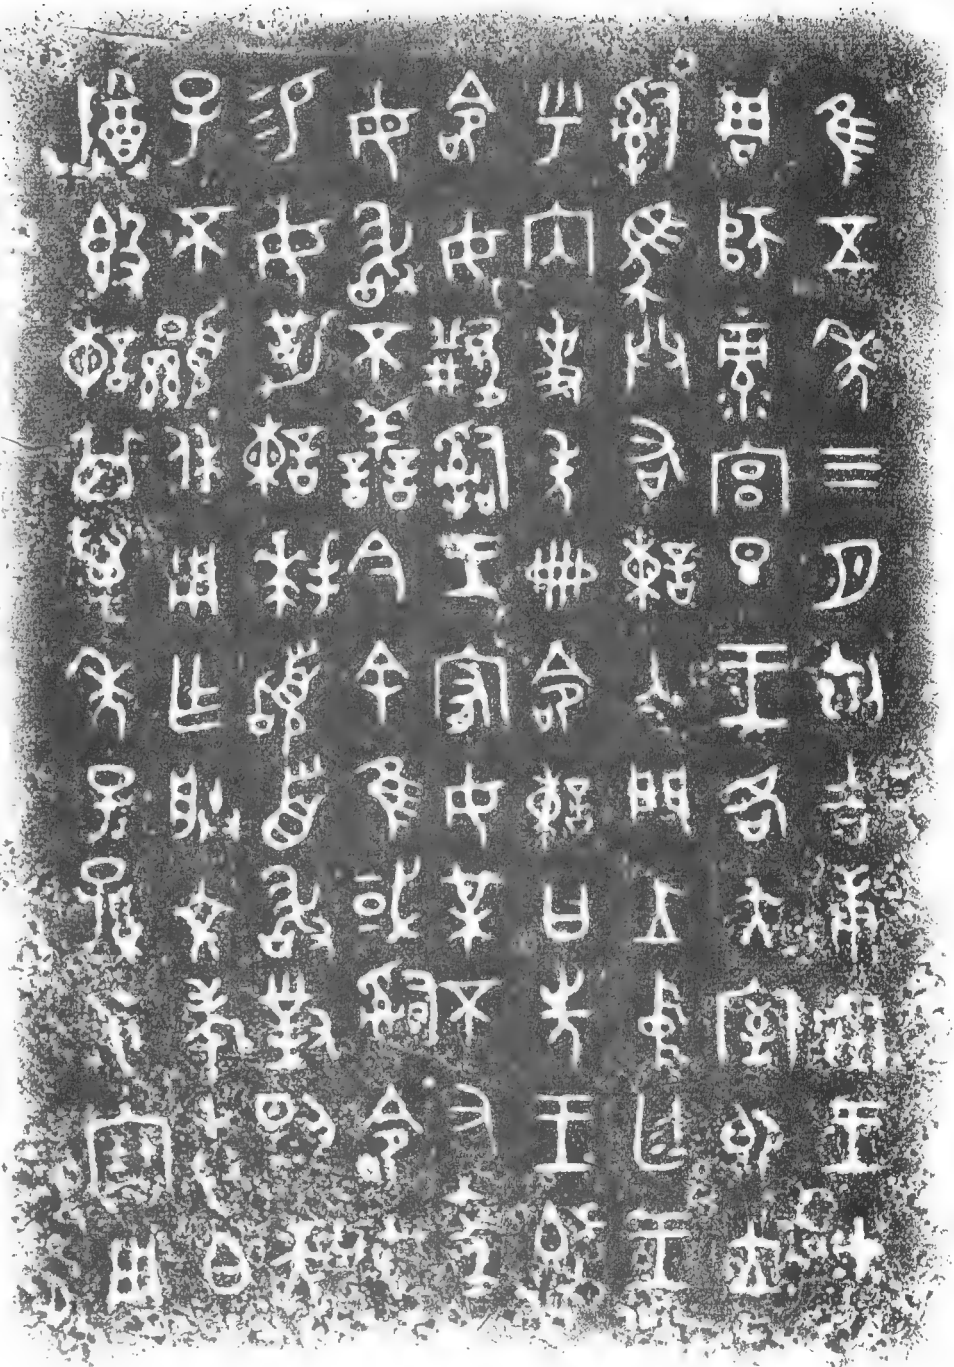 隹五年三月初吉庚寅王才
周師彔宮旦王各大室即立
𤔲馬共又諫入門立中廷王
乎內史年冊命諫曰先王既
命女𤔲王宥女某不又聞
毋敢不善今余隹或𤔲命女
易女勒諫拜𩒨首敢對揚天
子不顯休用乍朕文考叀白
尊𣪘諫其萬年子子孫孫永寶用